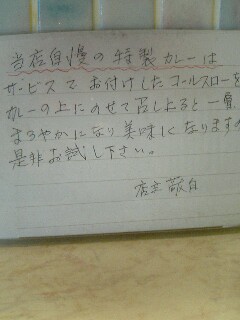 当店自慢の特製カレーは
サービスでお付けしたコールスローを
カレーの上にのせて召し上ると一層
まろやかになり美味しくなりますの
是非お試し下さい。
店主 敬白